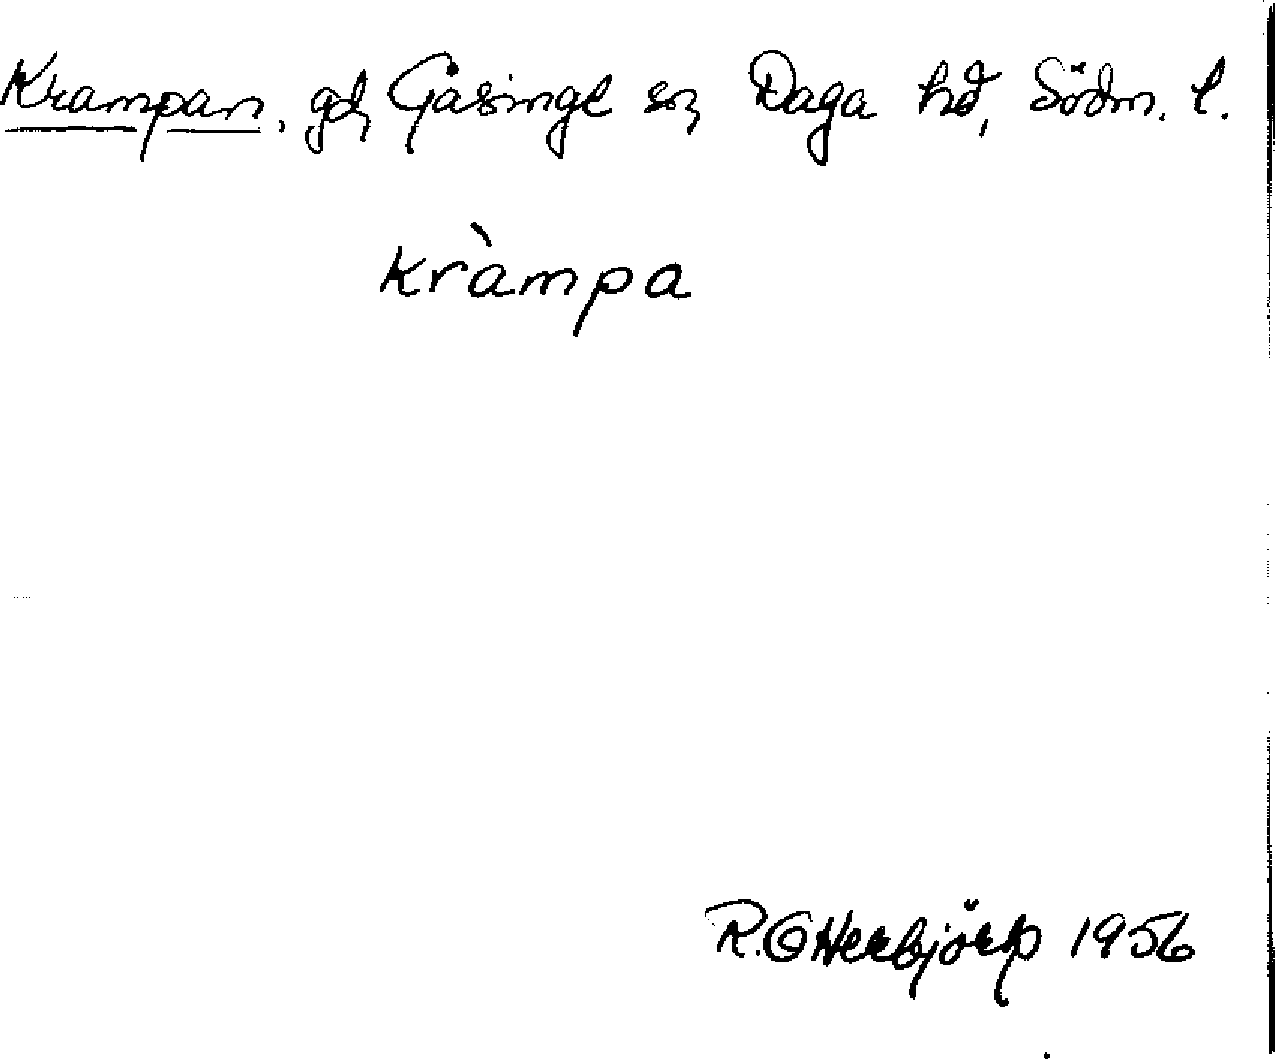 Krampan, gd, Gåsinge sn, Daga hd, Södm. l.
kràmpa
1956